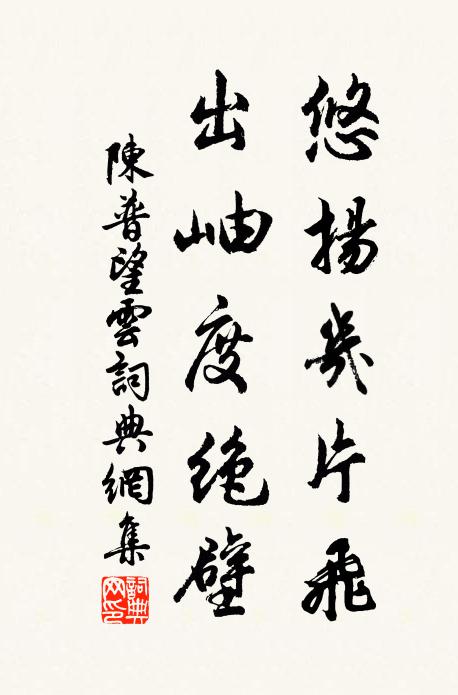 悠揚幾片飛
出岫度绝壁
陳普望雲詞典網集
詞典網印